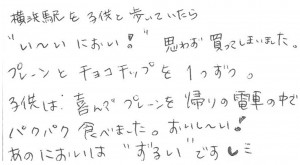 横浜駅を子供と歩いていたら
"い〜いにおい!" 思わず買ってしまいました。
プレーンとチョコチップを1つずつ。
子供は、喜んでプレーンを帰りの電車の中で
パクパク食べました。おいし〜い!
あのにおいは"ずるい"です